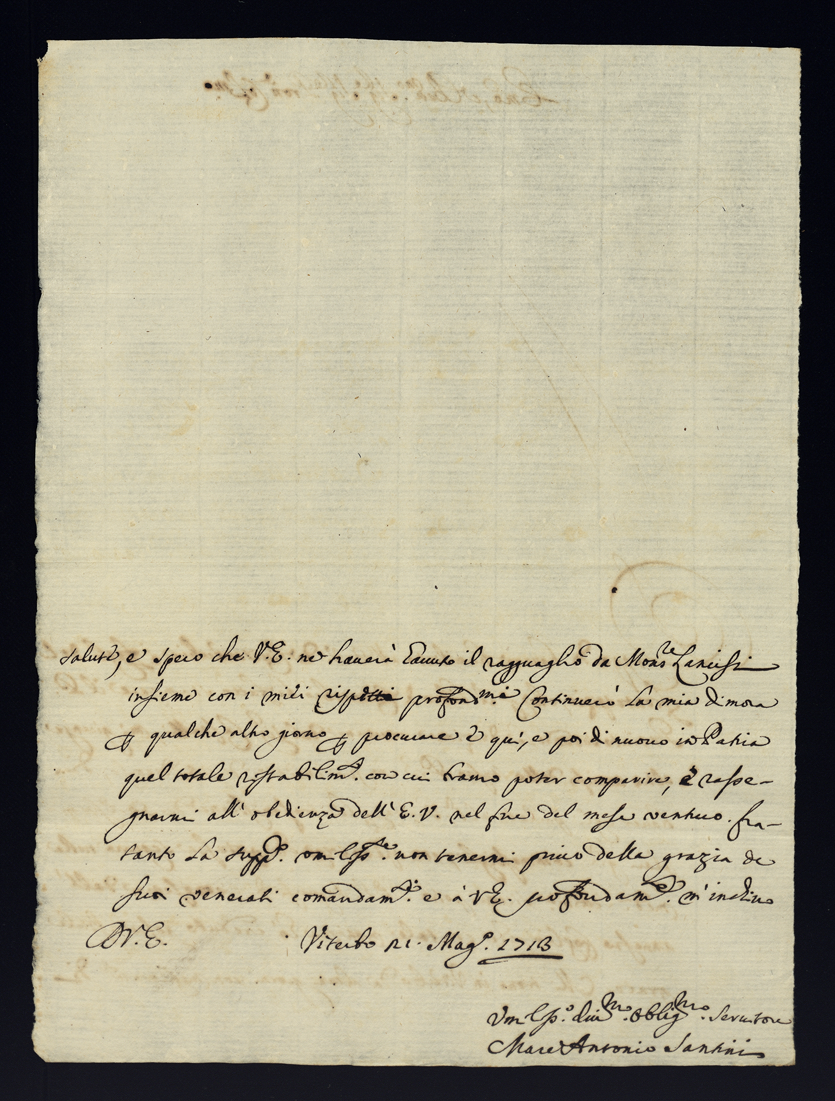 salute, e spero che V.E. ne haverà havuto il ragguaglio da Mons.re Lancisi
insieme con i miei rispetti profond.mi Continuerò la mia dimora
ꝑ qualche altro giorno ꝑ procurare e qui, e poi di nuovo in Patria
quel totale ristabilim.to con cui bramo poter comparire, e rasse-
gnarmi all'obedienza dell'E.V. nel fine del mese venturo. fra-
tanto la supp.co umilm.te non tenermi privo della grazia de
suoi venerati comandam.ti e à V.E. profondam.te m'inchino
D V.E. Viterbo Mag.o 1713
Um.lss.o div.mo oblig.mo Servitore
Marc'Antonio Santini